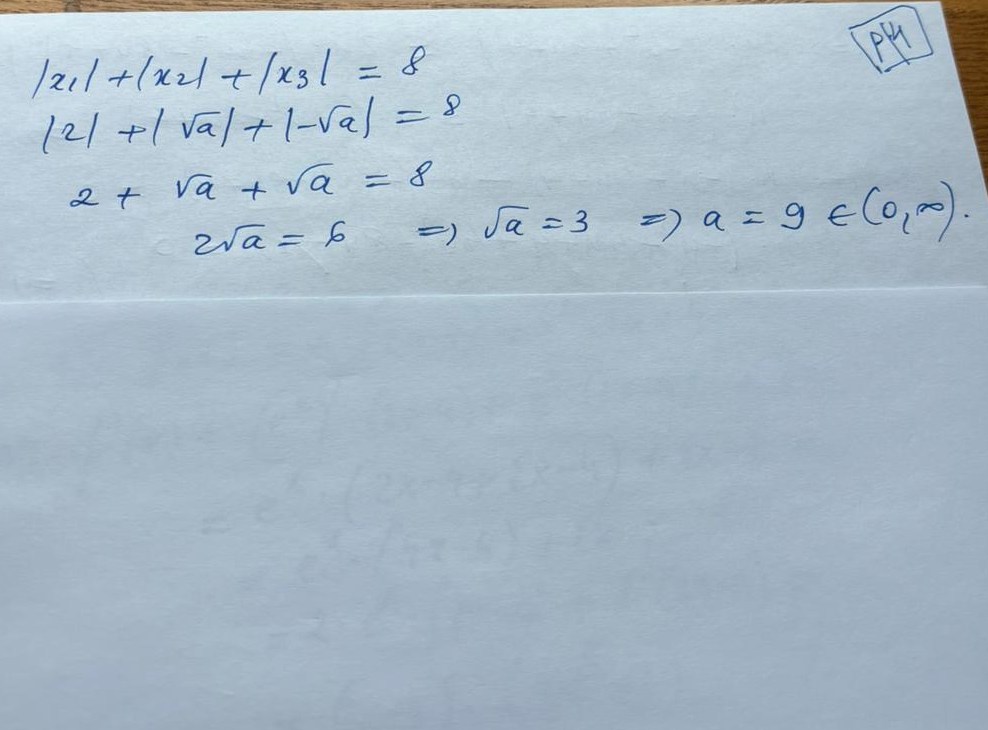 |x₁| + |x₂| + |x₃| = 8
|2| + |√a| + |-√a| = 8
2 + √a + √a = 8
2√a = 6 => √a = 3 => a = 9 ∈ (0, ∞).